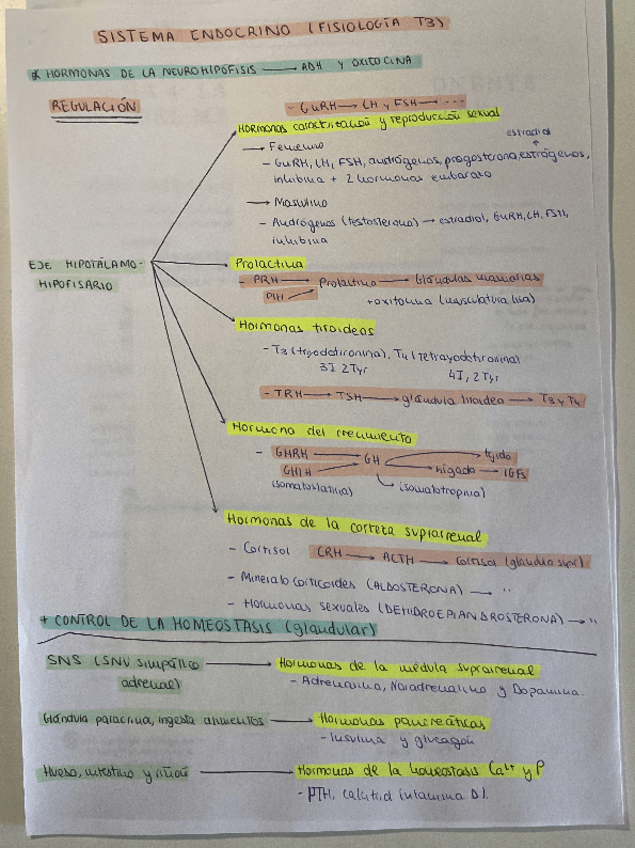 SISTEMA ENDOCRINO (FISIOLOGÍA T3)
* HORMONAS DE LA NEUROHIPÓFISIS → ADH Y OXITOCINA
REGULACIÓN
- GnRH → LH y FSH → ...
Hormonas caracterización y reproducción sexual
→ Femenino
estradiol
↑
- GnRH, LH, FSH, andrógenos, progesterona, estrógenos,
inhibina + 2 hormonas embarazo
→ Masculino
- Andrógenos (testosterona) → estradiol, GnRH, LH, FSH,
inhibina
EJE HIPOTÁLAMO-
HIPOFISARIO
Prolactina
- PRH → Prolactina → Glándulas mamarias
PIH
+ oxitocina (musculatura lisa)
Hormonas tiroideas
- T3 (triyodotironina), T4 (tetrayodotironina)
3I 2Tyr 4I, 2Tyr
- TRH → TSH → glándula tiroidea → T3 y T4
Hormona del crecimiento
- GHRH → GH → tejido
GHIH → hígado → IGFs
(somatostatina) (somatotropina)
Hormonas de la corteza suprarrenal
- Cortisol CRH → ACTH → Cortisol (glándula supr)
- Mineralocorticoides (ALDOSTERONA) → "
- Hormonas sexuales (DEHIDROEPIANDROSTERONA) → "
+ CONTROL DE LA HOMEOSTASIS (glandular)
SNS (SNV simpático → Hormonas de la médula suprarrenal
adrenal)
- Adrenalina, Noradrenalina y Dopamina.
Glándula paracrina, ingesta alimentos → Hormonas pancreáticas
- Insulina y glucagón
Hueso, intestino y riñón → Hormonas de la homeostasis Ca2+ y P
- PTH, calcitriol (vitamina D).